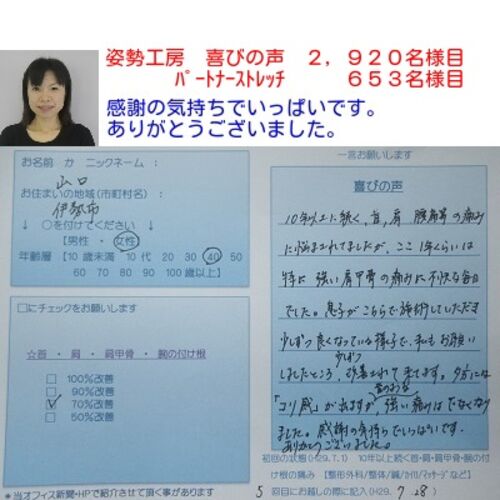 姿勢工房 喜びの声 2,920名様目
パートナーストレッチ 653名様目
感謝の気持ちでいっぱいです。
ありがとうございました。
お名前 か ニックネーム :
山口
お住まいの地域(市町村名) :
伊勢市
↓ ○を付けてください ↓
【男性 ・ 女性】
年齢層【10歳未満 10代 20 30 40 50
60 70 80 90 100歳以上】
□にチェックをお願いします
☆首 ・ 肩 ・ 肩甲骨 ・ 腕の付け根
□ 100%改善
□ 90%改善
□ 70%改善
□ 50%改善
*当オフィス新聞・HPで紹介させて頂く事があります
一言お願いします
喜びの声
10年以上に続く、首、肩 の痛み
に悩まされてましたが、ここ1年くらいは
特に 強い肩甲骨の痛みに不快な毎日
でした。息子がこちらで施術していただき
少しずつ良くなっている様子で、私もお願い
しましたところ、少しずつ改善されて来てます。夕方には
「コリ感」が出ますが、昔のような強い痛みはでなくなり
ました。感謝の気持ちでいっぱいです。
ありがとうございました。
初回の状態(H29.7.1) 10年以上続く首・肩・肩甲骨・腕の付
け根の痛み 【整形外科/整体/鍼/カイロ/マッサージなど】
5 回目にお越しの際に記入(H29. 7 .28)